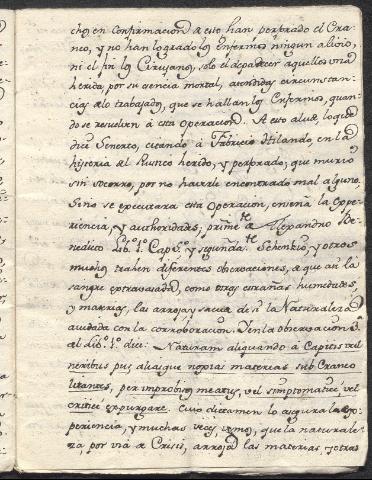 chos en confirmacion de esto han perforado el Cra-
neo, y no han logrado los Enfermos ningun alivio,
ni el fin los Cirujanos, solo el de padecer aquellos una
herida por su esencia mortal, atendidas circunstan-
cias de lo trabajados, que se hallan los Enfermos, quan-
do se resuelven à esta Operacion. A esto alude lo que
dice Senerto, citando à Fabricio Hildano, en la
historia del Rustico herido, y perforado; que murio
sin socorro, por no haverle encontrado mal alguno.
Si no se executara esta Operacion, enseña la Expe-
riencia, y authoridades; prime.te Alexandro Be-
nedicto Lib.º 1.º Cap.º y segunda.te Schenkio, y otros
muchos trahen diferentes observaciones, de que asi la
sangre extravasada, como otras estrañas humedades,
y materias, las arroja y sacude de si la Naturaleza
aiudada con la corroboracion. Y en la observacion
del Lib.º 1.º dice: Naturam aliquando à Capitis vul
neribus pus, aliasque noxias materias sub Craneo
litantes, per improbios meatus, vel simptomatice, vel
critice expurgare. Cuio dictamen lo asegura la Ex-
periencia, y muchas veces vemos, que la naturale-
za, por via de Crisis, arroja las materias, y otras